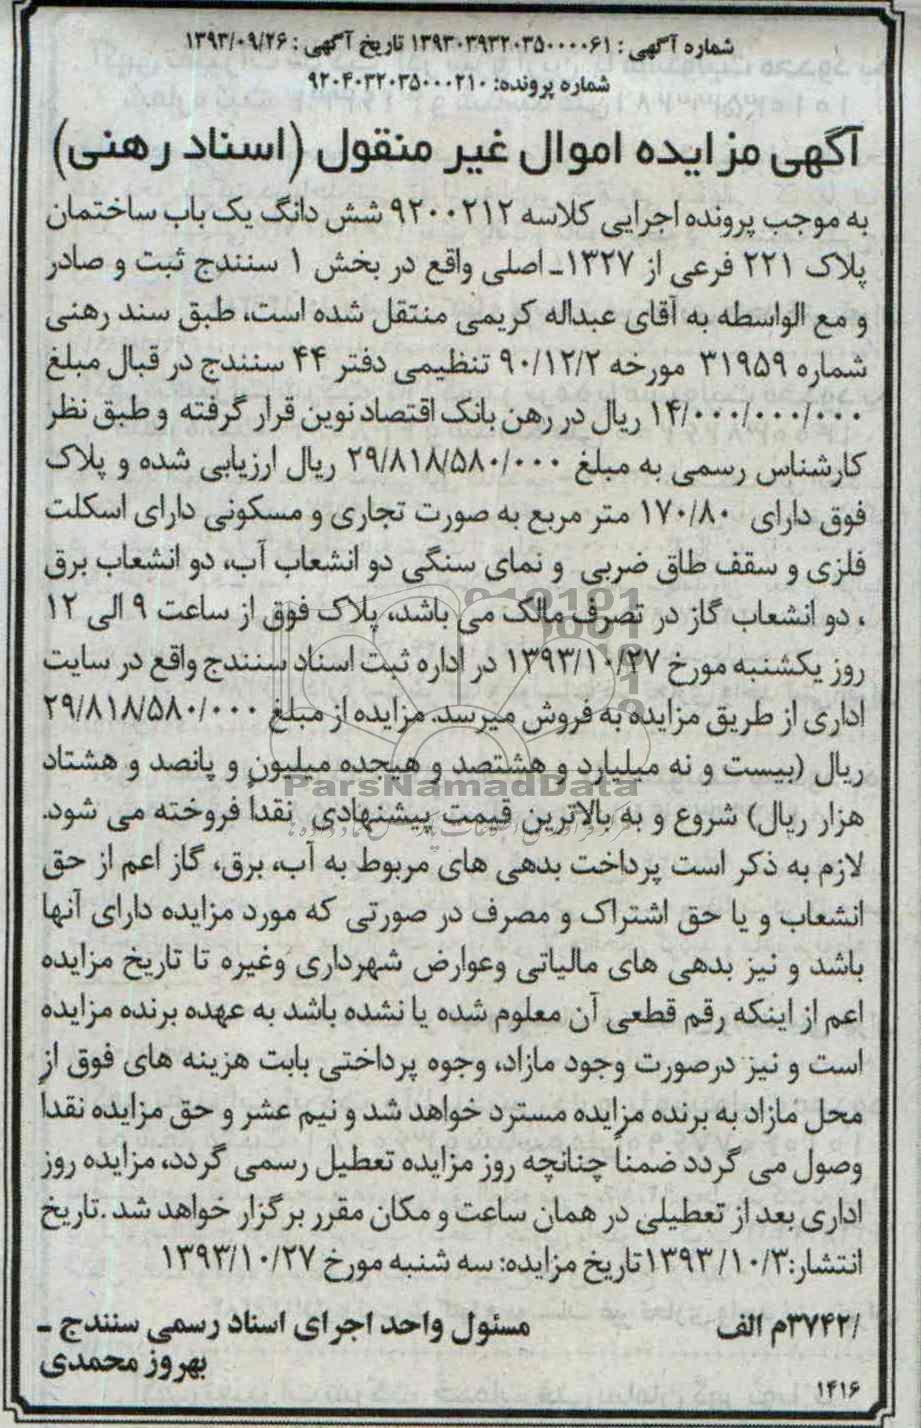 شماره آگهی : ۱۳۹۳۰۳۹۳۲۰۳۵۰۰۰۰۶۱ تاریخ آگهی : ۱۳۹۳/۰۹/۲۶
شماره پرونده: ۹۲۰۴۰۳۲۰۳۵۰۰۰۲۱۰
آگهی مزایده اموال غیر منقول (اسناد رهنی)
به موجب پرونده اجرایی کلاسه ۹۲۰۰۲۱۲ شش دانگ یک باب ساختمان
پلاک ۲۲۱ فرعی از ۱۳۲۷ـ اصلی واقع در بخش ۱ سنندج ثبت و صادر
و مع الواسطه به آقای عبداله کریمی منتقل شده است، طبق سند رهنی
شماره ۳۱۹۵۹ مورخه ۹۰/۱۲/۲ تنظیمی دفتر ۴۴ سنندج در قبال مبلغ
۱۴/۰۰۰/۰۰۰/۰۰۰ ریال در رهن بانک اقتصاد نوین قرار گرفته و طبق نظر
کارشناس رسمی به مبلغ ۲۹/۸۱۸/۵۸۰/۰۰۰ ریال ارزیابی شده و پلاک
فوق دارای ۱۷۰/۸۰ متر مربع به صورت تجاری و مسکونی دارای اسکلت
فلزی و سقف طاق ضربی و نمای سنگی دو انشعاب آب، دو انشعاب برق
، دو انشعاب گاز در تصرف مالک می باشد، پلاک فوق از ساعت ۹ الی ۱۲
روز یکشنبه مورخ ۱۳۹۳/۱۰/۲۷ در اداره ثبت اسناد سنندج واقع در سایت
اداری از طریق مزایده به فروش میرسد. مزایده از مبلغ ۲۹/۸۱۸/۵۸۰/۰۰۰
ریال (بیست و نه میلیارد و هشتصد و هیجده میلیون و پانصد و هشتاد
ParsNamadData
هزار ریال) شروع و به بالاترین قیمت پیشنهادی نقداً فروخته می شود.
لازم به ذکر است پرداخت بدهی های مربوط به آب، برق، گاز اعم از حق
انشعاب و یا حق اشتراک و مصرف در صورتی که مورد مزایده دارای آنها
باشد و نیز بدهی های مالیاتی وعوارض شهرداری وغیره تا تاریخ مزایده
اعم از اینکه رقم قطعی آن معلوم شده یا نشده باشد به عهده برنده مزایده
است و نیز درصورت وجود مازاد، وجوه پرداختی بابت هزینه های فوق از
محل مازاد به برنده مزایده مسترد خواهد شد و نیم عشر و حق مزایده نقدا
وصول می گردد ضمناً چنانچه روز مزایده تعطیل رسمی گردد، مزایده روز
اداری بعد از تعطیلی در همان ساعت و مکان مقرر برگزار خواهد شد .تاریخ
انتشار:۱۳۹۳/۱۰/۳تاریخ مزایده: سه شنبه مورخ ۱۳۹۳/۱۰/۲۷
/۳۷۴۲م الف مسئول واحد اجرای اسناد رسمی سنندج ـ
بهروز محمدی
۱۴۱۶